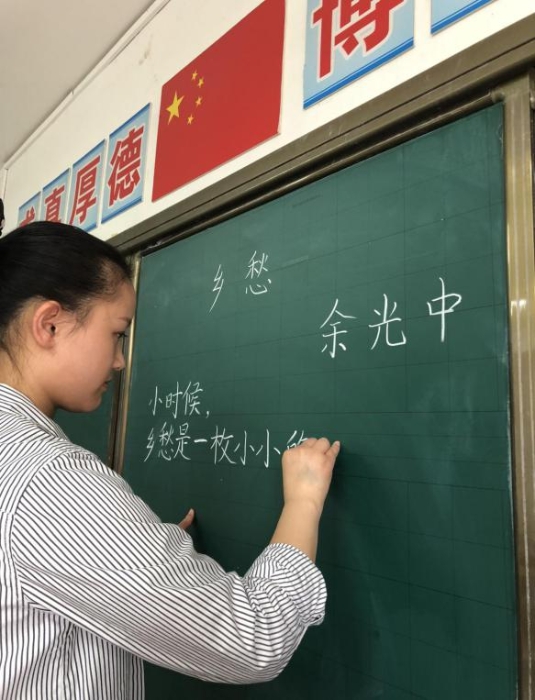 真厚德
博
乡愁
余光中
小时候,
乡愁是一枚小小的